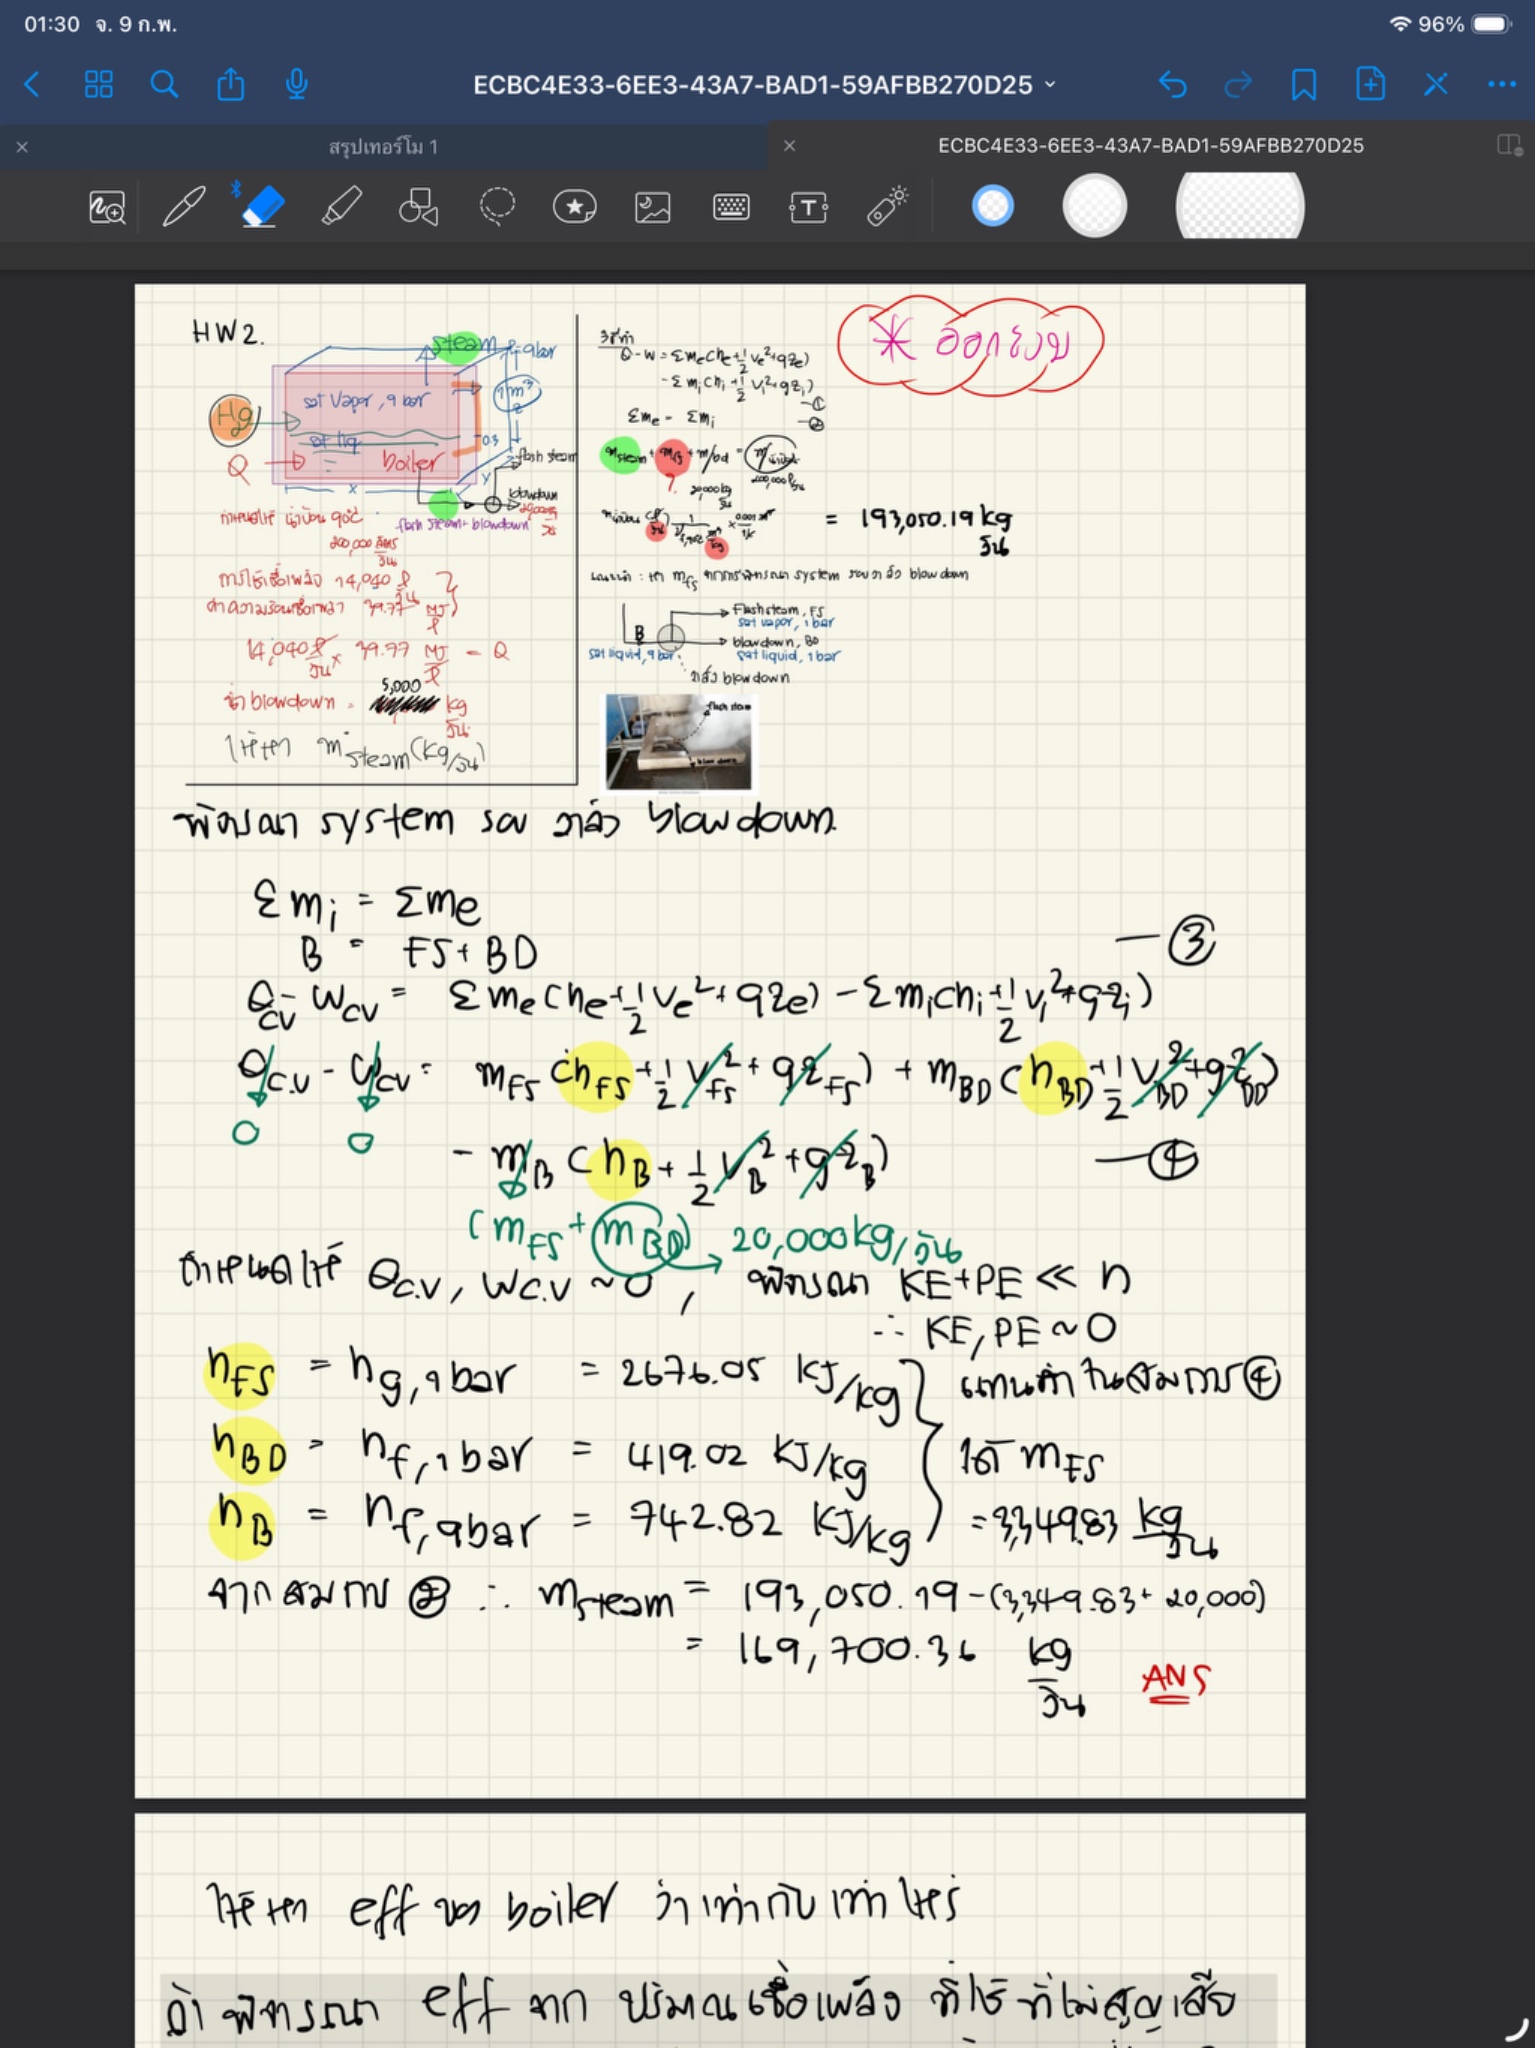 01:30 จ. 9 ก.พ.
96%
ECBC4E33-6EE3-43A7-BAD1-59AFBB270D25
สรุปเทอร์โม 1
ECBC4E33-6EE3-43A7-BAD1-59AFBB270D25
HW2.
steam
9 bar
sat vapor, 9 bar
1 m³
Hg
sat liq
0.3
Q
boiler
flash steam
x
y
z
blowdown
flash steam + blowdown
กำหนดให้ น้ำป้อน 90°C
200,000 ลิตร/วัน
การใช้เชื้อเพลิง 14,040 ℓ/วัน
ค่าความร้อนเชื้อเพลิง 39.77 MJ/ℓ
14,040 ℓ/วัน × 39.77 MJ/ℓ = Q
น้ำ blowdown = 5,000 kg/วัน
ให้หา ṁsteam (kg/วัน)
วิธีทำ
Q - W = Σme(he+½ve²+gze)
- Σmi(hi+½vi²+gzi) —①
Σme = Σmi —②
msteam + mfs + mbd = mน้ำป้อน
?
20,000 kg/วัน
200,000 ℓ/วัน
= 193,050.19 kg/วัน
แนะนำ : หา mfs จากการพิจารณา system รอบวาล์ว blowdown
Flash steam, FS
sat vapor, 1 bar
B
blowdown, BD
sat liquid, 9 bar
sat liquid, 1 bar
วาล์ว blowdown
flash steam
blow down
* ออกสอบ
พิจารณา system รอบ วาล์ว blowdown.
Σmi = Σme
B = FS + BD —③
QCV - WCV = Σme(he+½ve²+gze) - Σmi(hi+½vi²+gzi)
QC.V - WCV = mFS(hFS+½vFS²+gzFS) + mBD(hBD+½vBD²+gzBD)
0 0
- mB(hB+½vB²+gzB) —④
(mFS + mBD) → 20,000 kg/วัน
กำหนดให้ QC.V, WC.V ~ 0, พิจารณา KE+PE ≪ h
∴ KE, PE ~ 0
hFS = hg, 1 bar = 2676.05 kJ/kg
แทนค่าในสมการ ④
hBD = hf, 1 bar = 419.02 kJ/kg
ได้ mFS
hB = hf, 9 bar = 742.82 kJ/kg
= 3,349.83 kg/วัน
จากสมการ ② ∴ msteam = 193,050.19 - (3,349.83 + 20,000)
= 169,700.36 kg/วัน
ANS
ให้หา eff ของ boiler ว่าเท่ากับเท่าไหร่
ถ้าพิจารณา eff จาก ปริมาณเชื้อเพลิง ที่ใช้ ที่ไม่สูญเสีย